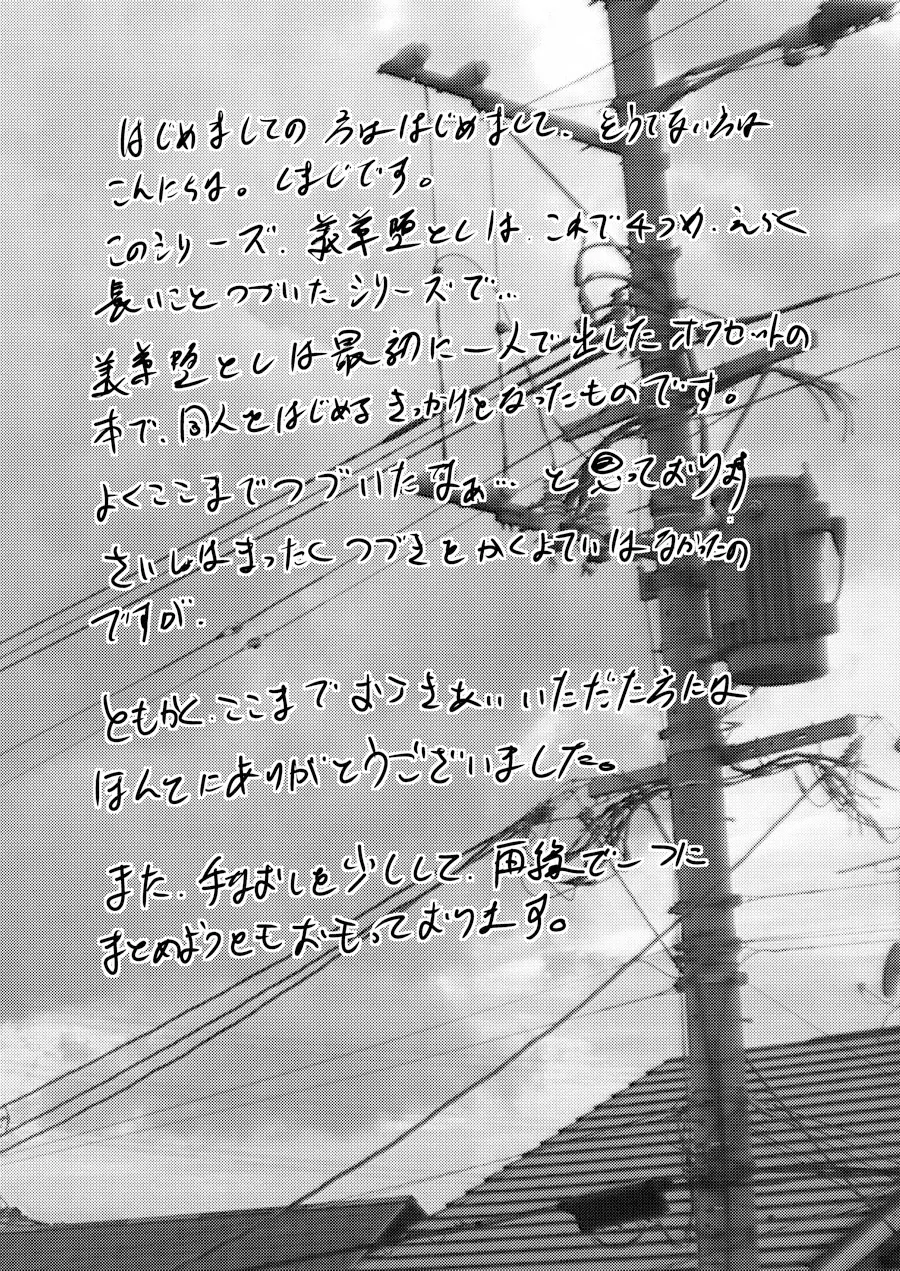 はじめましての方ははじめまして、そうでない方は
こんにちは。くまじです。
このシリーズ、義草堕としは、これで4つめ、えらく
長いことつづいたシリーズで…
義草堕としは最初に一人で出したオフセットの
本で、同人をはじめるきっかけとなったものです。
よくここまでつづいたなぁ…と思っております
さいしょはまったくつづきをかくよていはなかったの
ですが、
ともかく、ここまでおつきあいいただいた方には
ほんとにありがとうございました。
また、手なおしを少しして、再録で一つに
まとめようともおもっております。